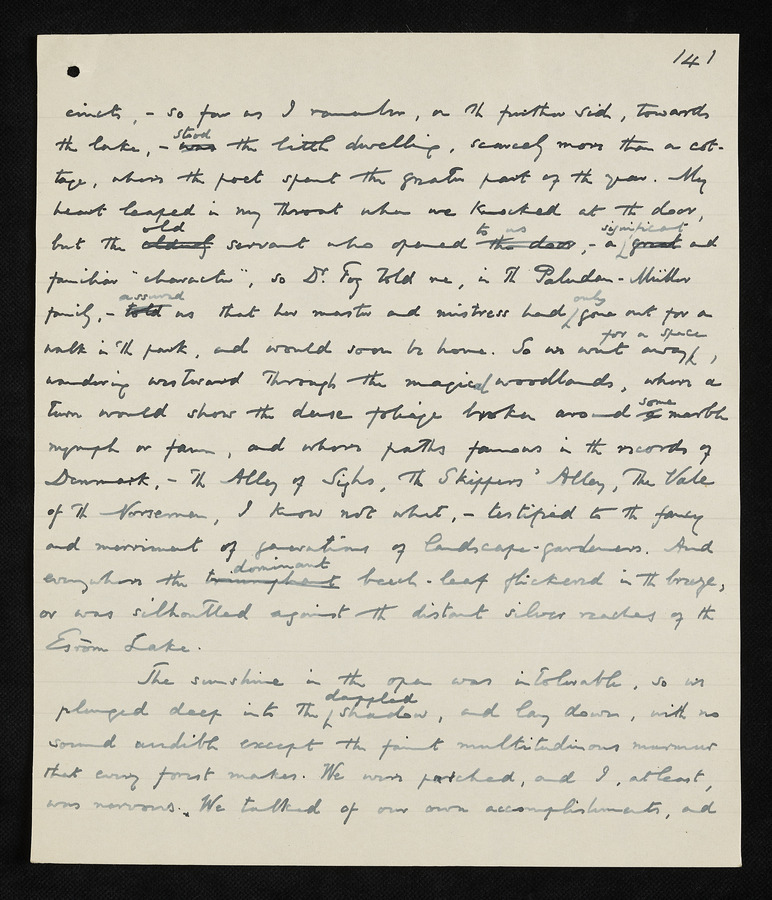 141
cincts, - so far as I remember, on the further side, towards
stood
the lake, - was the little dwelling, scarcely more than a cot-
tage, where the poet spent the greater part of the year. My
heart leaped in my throat when we knocked at the door,
old to us significant
but the elderly servant who opened the door, - a great and
familiar "character", so Dr. Fog told me, in the Paludan-Müller
assured only
family, - told us that her master and mistress had gone out for a
for a space
walk in the park, and would soon be home. So we went away,
wandering westward through the magical woodlands, where a
some
turn would show the dense foliage broken around a marble
nymph or faun, and where paths famous in the records of
Denmark, - the Alley of Sighs, the Skippers' Alley, the Vale
of the Norsemen, I know not what, - testified to the fancy
and merriment of generations of landscape-gardeners. And
dominant
everywhere the triumphant beech-leaf flickered in the breeze,
or was silhoutted against the distant silver reaches of the
Esrom Lake.
The sunshine in the open was intolerable, so we
dappled
plunged deep into the shadow, and lay down, with no
sound audible except the faint multitudinous murmur
that every forest makes. We were parched, and I, at least,
was nervous. We talked of our own accomplishments, and